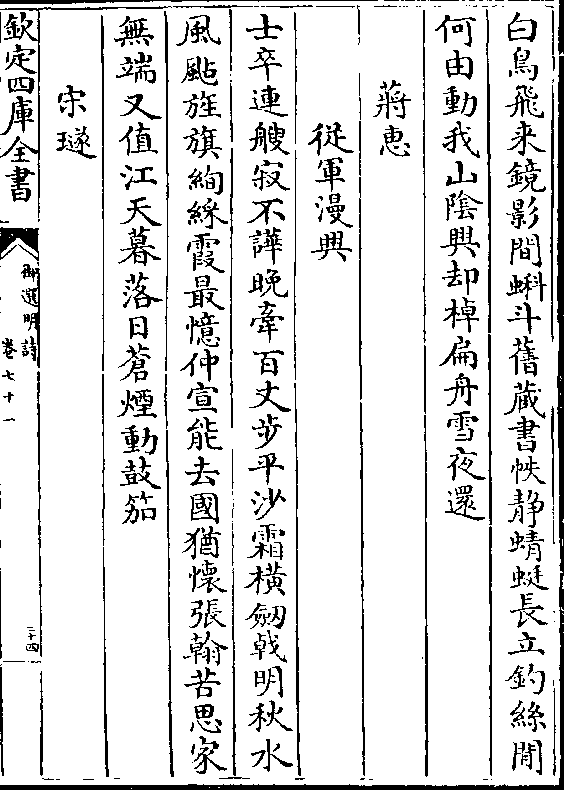 白鳥飛来鏡影間蝌斗舊藏書帙静蜻蜓長立釣絲閒
何由動我山陰興却棹扁舟雪夜還
蔣惠
從軍漫興
士卒連艘寂不譁晚牽百丈步平沙霜橫劒戟明秋水
風颭旌旗絢綵霞最憶仲宣能去國猶懷張翰苦思家
無端又值江天暮落日蒼煙動鼓笳
宋璲
欽定四庫全書
御選明詩
卷七十一
二十四